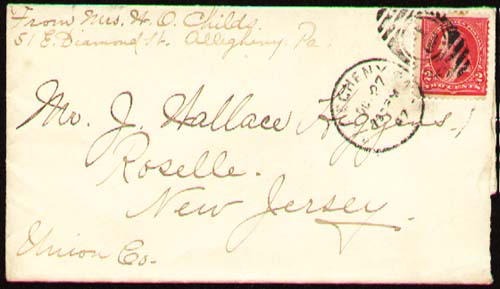 From Mrs. H. O. Childs.
51 E. Diamond St. Allegheny. Pa.
Mr. J. Wallace Higgins,
Roselle.
New Jersey.
Union Co.
ALLEGHENY
97
2 2
TWO CENTS